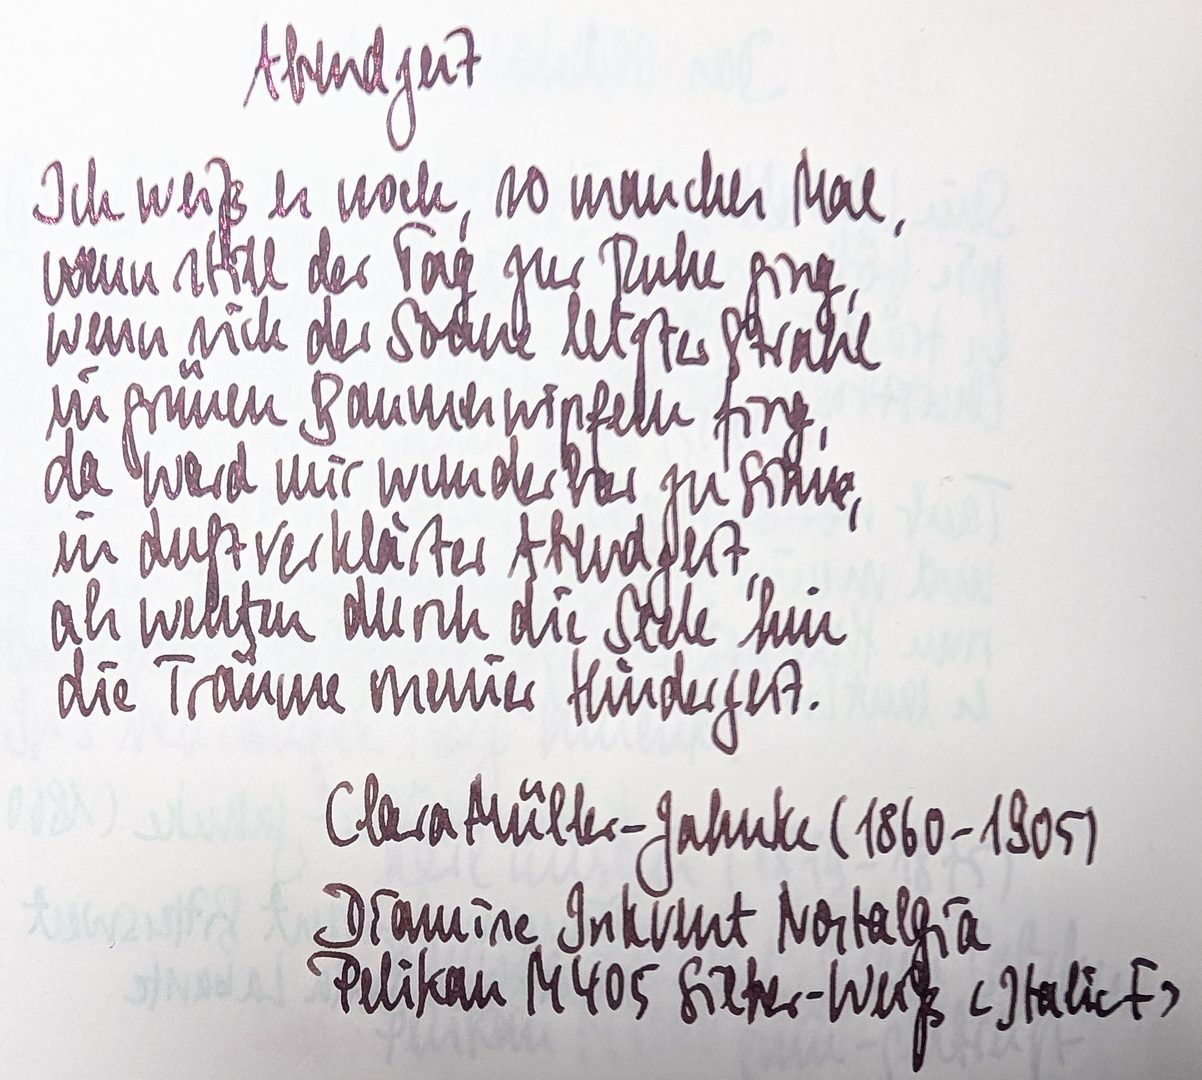 Abendzeit
Ich weiß es noch, so manches Mal,
wenn still der Tag zur Ruhe ging,
wenn sich der Sonne letzter Strahl
in grünen Baumeswipfeln fing,
da ward mir wunderbar zu Sinne,
in duftverklärter Abendzeit,
als wehten durch die Seele hin
die Träume meiner Kinderzeit.
Clara Müller-Jahnke (1860-1905)
Diamine Inkvent Nostalgia
Pelikan M405 Silber-Weiß <Italic F>